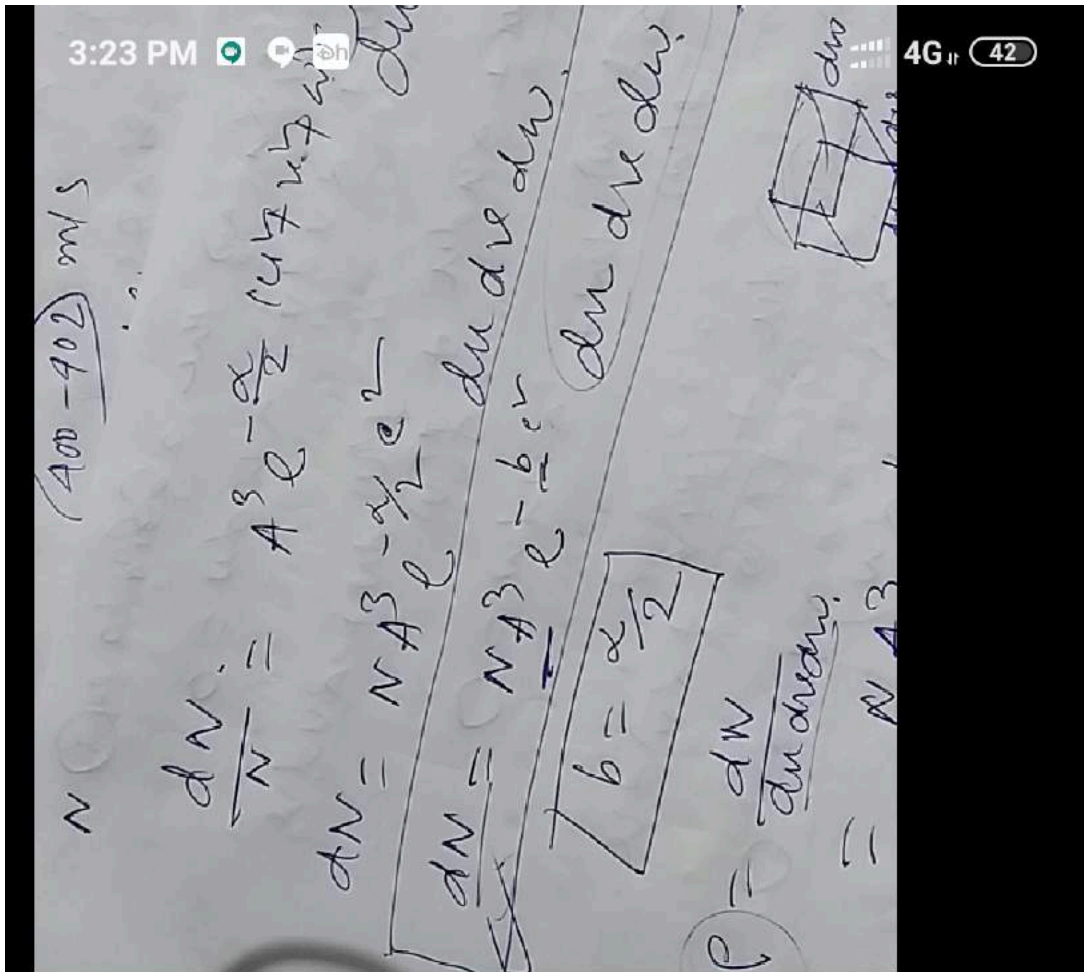 3:23 PM
4G 42
N (400-402) m/s
dN/N = A³ e^-α/2 (u²+v²+w²) du
dN = NA³ e^-α/2 c² du dv dw
dN = NA³ e^-bc² du dv dw
b = α/2
ρ = dN/du dv dw
= N A³
dw